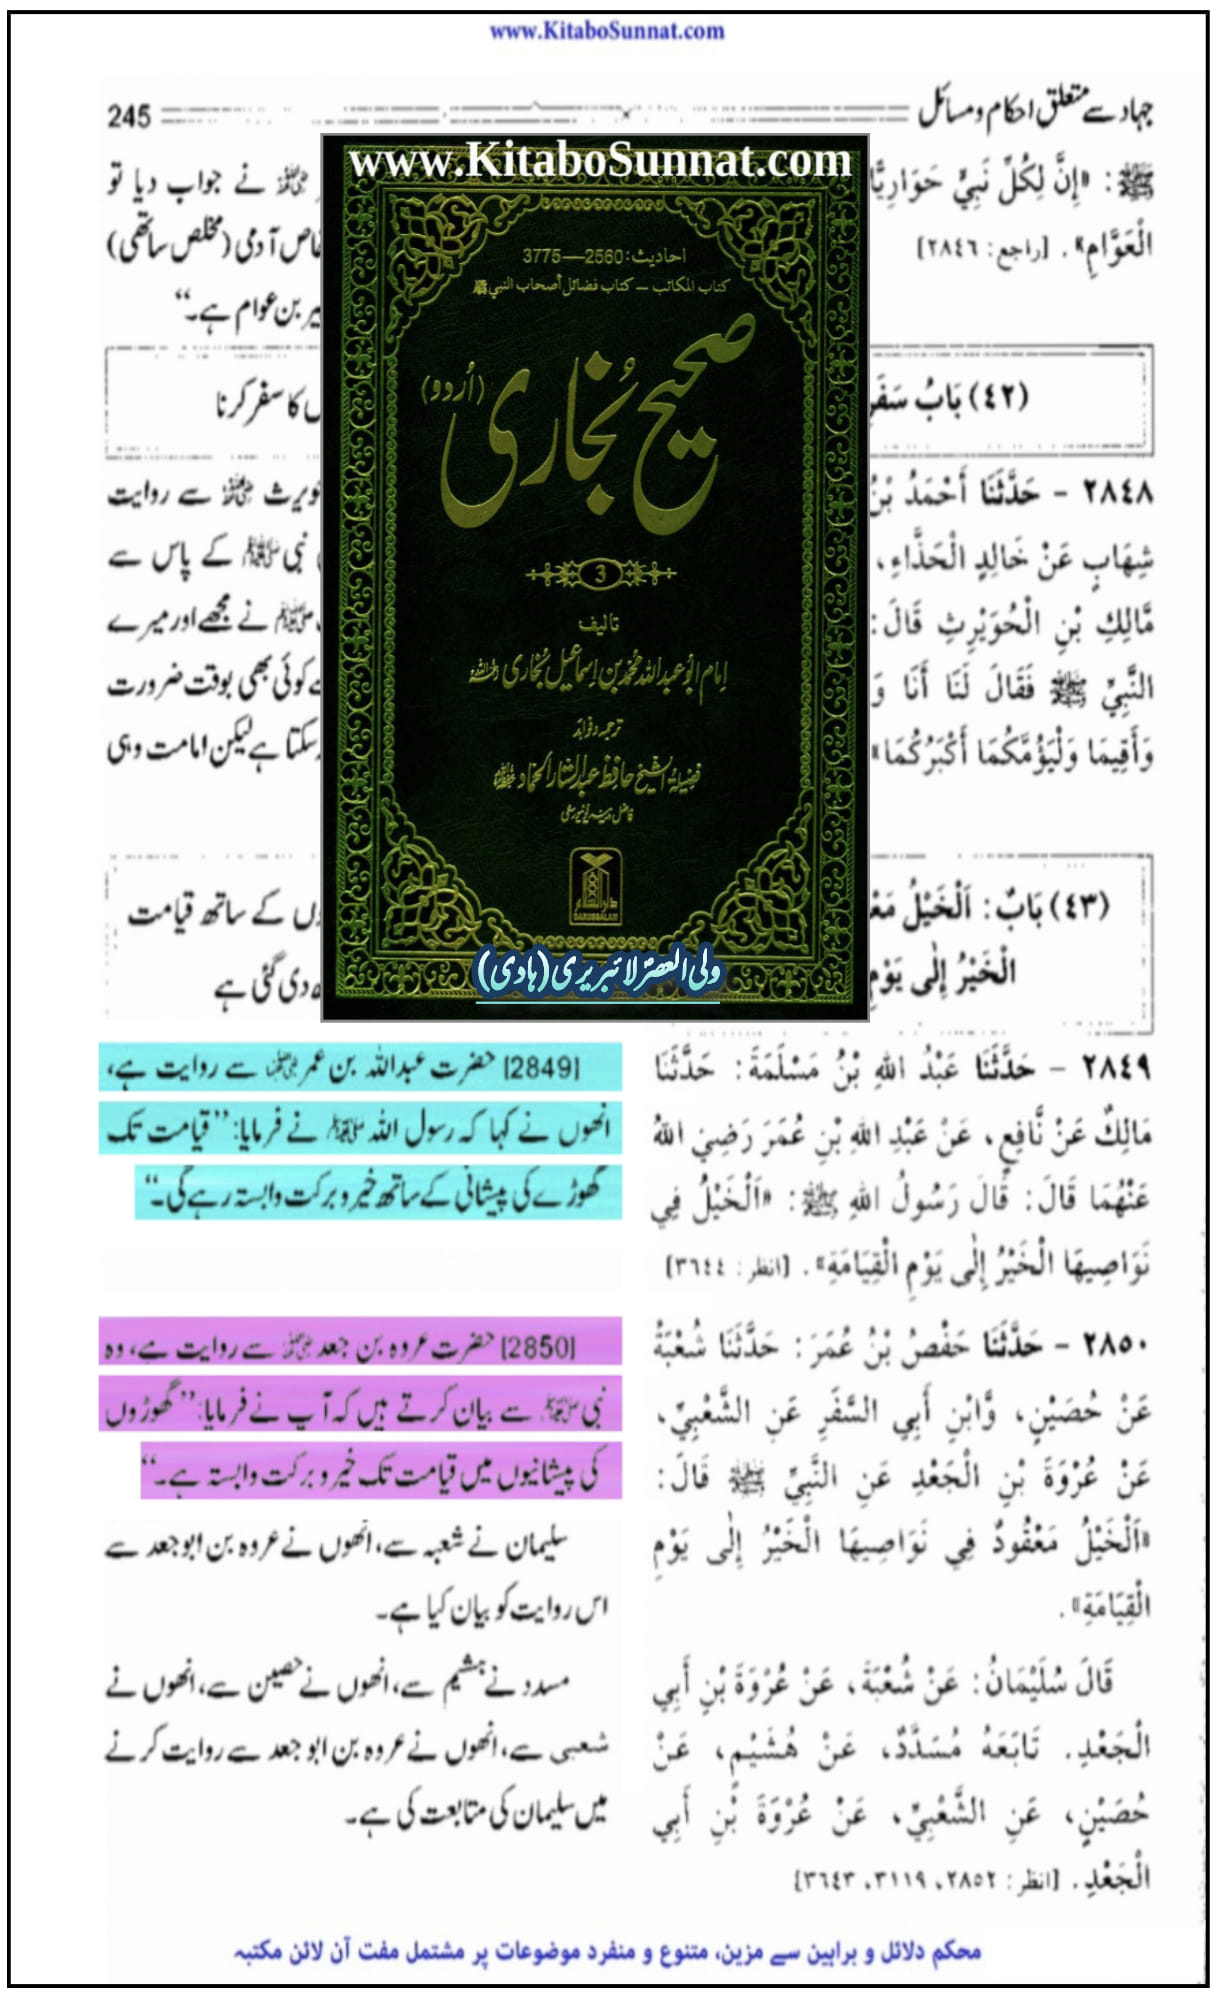 www.KitaboSunnat.com
جہاد سے متعلق احکام و مسائل
245
ﷺ: «إِنَّ لِكُلِّ نَبِيٍّ حَوَارِيًّا
الْعَوَّامِ». [راجع: ٢٨٤٦]
نے جواب دیا تو
خاص آدمی (مخلص ساتھی)
بن عوام ہے۔‘‘
(٤٢) بَابُ سَفَرِ
کا سفر کرنا
٢٨٤٨ - حَدَّثَنَا أَحْمَدُ بْنُ
شِهَابٍ عَنْ خَالِدٍ الْحَذَّاءِ،
مَّالِكِ بْنِ الْحُوَيْرِثِ قَالَ:
النَّبِيِّ ﷺ فَقَالَ لَنَا أَنَا وَ
وَأَقِيمَا وَلْيَؤُمَّكُمَا أَكْبَرُكُمَا»
سے روایت
نبی ﷺ کے پاس سے
ﷺ نے مجھے اور میرے
کوئی بھی بوقت ضرورت
سکتا ہے لیکن امامت وہی
(٤٣) بَابٌ: اَلْخَيْلُ
الْخَيْرُ إِلٰى يَوْمِ
کے ساتھ قیامت
دی گئی ہے
www.KitaboSunnat.com
احادیث: 2560—3775
کتاب المکاتب – کتاب فضائل أصحاب النبي ﷺ
صحیح بخاری (اُردو)
3
تالیف
امام ابوعبداللہ محمد بن اسماعیل بخاری رحمہ اللہ
ترجمہ و فوائد
فضیلۃ الشیخ حافظ عبدالستار الحماد حفظہ اللہ
فاضل مدینہ یونیورسٹی
دارالسلام
DARUSSALAM
ولی العصرؑ لائبریری (ہادی)
٢٨٤٩ - حَدَّثَنَا عَبْدُ اللهِ بْنُ مَسْلَمَةَ: حَدَّثَنَا
مَالِكٌ عَنْ نَّافِعٍ، عَنْ عَبْدِ اللهِ بْنِ عُمَرَ رَضِيَ اللهُ
عَنْهُمَا قَالَ: قَالَ رَسُولُ اللهِ ﷺ: «اَلْخَيْلُ فِي
نَوَاصِيهَا الْخَيْرُ إِلٰى يَوْمِ الْقِيَامَةِ». [انظر: ٣٦٤٤]
[2849] حضرت عبداللہ بن عمر رضی اللہ عنہما سے روایت ہے،
انھوں نے کہا کہ رسول اللہ ﷺ نے فرمایا: ’’قیامت تک
گھوڑے کی پیشانی کے ساتھ خیر و برکت وابستہ رہے گی۔‘‘
٢٨٥٠ - حَدَّثَنَا حَفْصُ بْنُ عُمَرَ: حَدَّثَنَا شُعْبَةُ
عَنْ حُصَيْنٍ، وَّابْنِ أَبِي السَّفَرِ عَنِ الشَّعْبِيِّ،
عَنْ عُرْوَةَ بْنِ الْجَعْدِ عَنِ النَّبِيِّ ﷺ قَالَ:
«اَلْخَيْلُ مَعْقُودٌ فِي نَوَاصِيهَا الْخَيْرُ إِلٰى يَوْمِ
الْقِيَامَةِ».
قَالَ سُلَيْمَانُ: عَنْ شُعْبَةَ، عَنْ عُرْوَةَ بْنِ أَبِي
الْجَعْدِ. تَابَعَهُ مُسَدَّدٌ، عَنْ هُشَيْمٍ، عَنْ
حُصَيْنٍ، عَنِ الشَّعْبِيِّ، عَنْ عُرْوَةَ بْنِ أَبِي
الْجَعْدِ. [انظر: ٢٨٥٢، ٣١١٩، ٣٦٤٣]
[2850] حضرت عروہ بن جعد رضی اللہ عنہ سے روایت ہے، وہ
نبی ﷺ سے بیان کرتے ہیں کہ آپ نے فرمایا: ’’گھوڑوں
کی پیشانیوں میں قیامت تک خیر و برکت وابستہ ہے۔‘‘
سلیمان نے شعبہ سے، انھوں نے عروہ بن ابو جعد سے
اس روایت کو بیان کیا ہے۔
مسدد نے ہشیم سے، انھوں نے حصین سے، انھوں نے
شعبی سے، انھوں نے عروہ بن ابو جعد سے روایت کرنے
میں سلیمان کی متابعت کی ہے۔
محکم دلائل و براہین سے مزین، متنوع و منفرد موضوعات پر مشتمل مفت آن لائن مکتبہ